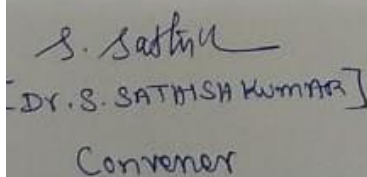 S. Sathish
[Dr. S. SATHISH KUMAR]
Convener